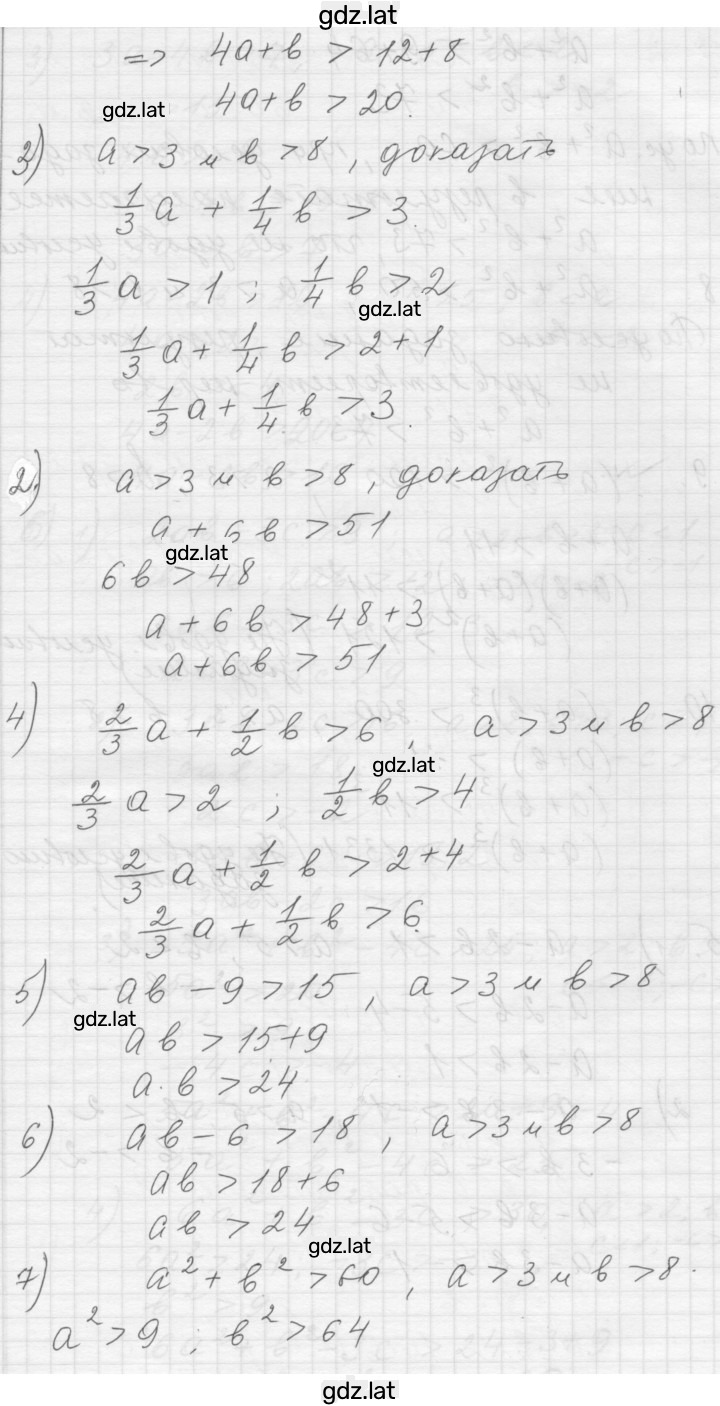 gdz.lat
=> 4a+b > 12+8
gdz.lat 4a+b > 20.
3) a>3 и b>8, доказать
1/3 a + 1/4 b > 3.
1/3 a > 1 ; 1/4 b > 2
gdz.lat
1/3 a + 1/4 b > 2+1
1/3 a + 1/4 b > 3.
2) a>3 и b>8, доказать
a + 6b > 51
gdz.lat
6b > 48
a + 6b > 48+3
a + 6b > 51
4) 2/3 a + 1/2 b > 6, a>3 и b>8
gdz.lat
2/3 a > 2 ; 1/2 b > 4
2/3 a + 1/2 b > 2+4
2/3 a + 1/2 b > 6.
5) ab - 9 > 15, a>3 и b>8
gdz.lat
ab > 15+9
a·b > 24
6) ab - 6 > 18, a>3 и b>8
ab > 18+6
ab > 24
gdz.lat
7) a² + b² > 60, a>3 и b>8.
a² > 9 ; b² > 64
gdz.lat